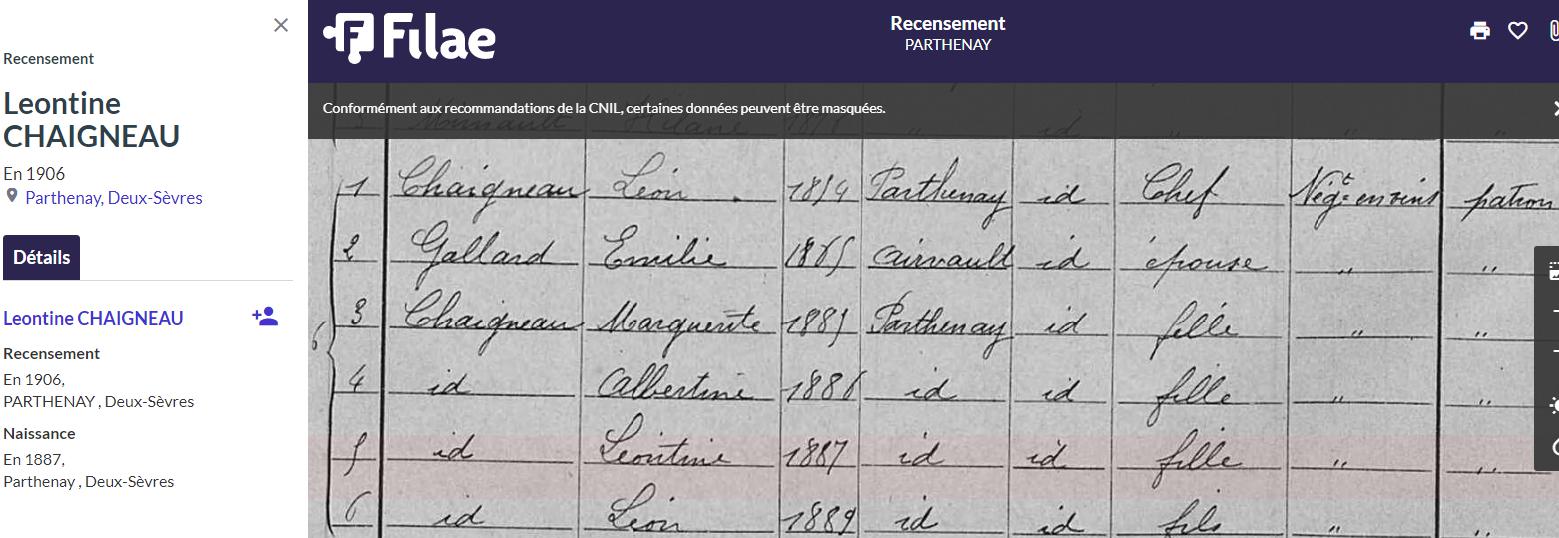 Recensement
Leontine
CHAIGNEAU
En 1906
Parthenay, Deux-Sèvres
Détails
Leontine CHAIGNEAU
Recensement
En 1906,
PARTHENAY , Deux-Sèvres
Naissance
En 1887,
Parthenay , Deux-Sèvres
Filae
Recensement
PARTHENAY
Conformément aux recommandations de la CNIL, certaines données peuvent être masquées.
1 Chaigneau Léon Parthenay id Chef Négt en vins patron
2 Gallard Emilie 1865 airvault id épouse " "
3 Chaigneau Marguerite 1885 Parthenay id fille " "
6
4 id Albertine 1886 id id fille " "
5 id Léontine 1887 id id fille " "
6 id Léon 1889 id id fils " "